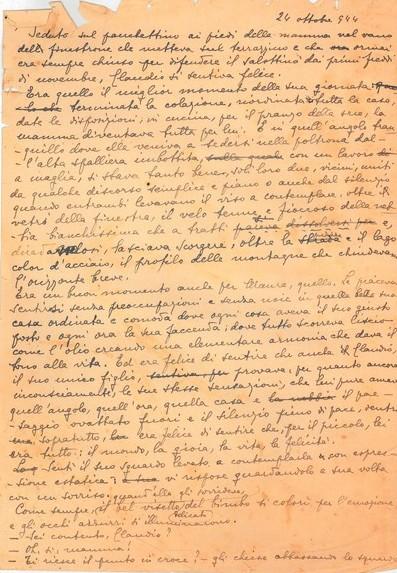 24 ottobre 944
Seduto sul panchettino ai piedi della mamma nel vano
della finestrone che metteva sul terrazzino e che ormai
era sempre chiuso per difendere il salottino dai primi freddi
di novembre, Claudio si sentiva felice.
Era quello il miglior momento della sua giornata
terminata la colazione, riordinata tutta la casa,
date le disposizioni, in cucina, per il pranzo della sera, la
mamma diventava tutta per lui. E in quell'angolo tran-
quillo dove elle veniva a sedersi nella poltrona dal-
l'alta spalliera imbottita, sulla quale con un lavoro
a maglia, si stava tanto bene, soli loro due, vicini, uniti
da qualche discorso semplice e piano o anche dal silenzio
quando entrambi levavano il viso a contemplare, oltre i
vetri della finestra, il velo tenue e fioccoso della neb-
bia bianchissima che a tratti pareva dissolversi e,
lasciava scorgere, oltre la strada e il lago
color d'acciaio, il profilo delle montagne che chiudevano
l'orizzonte breve.
Era un buon momento anche per Maura, quello. Le piaceva
sentirsi senza preoccupazioni e senza noie in quella bella sua
casa ordinata e comoda dove ogni cosa aveva il suo giusto
posto e ogni ora la sua faccenda; dove tutto scorreva liscio
come l'olio creando una elementare armonia che dava il
tono alla vita. Ed era felice di sentire che anche il Claudio,
il suo unico figlio, sentiva, per provava, per quanto ancora
inconsciamente, le sue stesse sensazioni; che lui pure amava
quell'angolo, quell'ora, quella casa e la nebbia il pae-
saggio ovattato fuori e il silenzio pieno di pace, dentro
ma, sopratutto, era felice di sentire che, per il piccolo, lei
era tutto: il mondo, la gioia, la vita, la felicità.
Sentì il suo sguardo levato a contemplarla con espres-
sione estatica e vi rispose guardandolo a sua volta
con un sorriso. quand'ella gli sorrideva,
Come sempre, il bel visetto del bimbo si colorì per l'emozione
e gli occhi azzurri si illuminarono.
delicati
— Sei contento, Claudio?
— Oh, sì, mamma!
— Ti riesce il punto in croce? — gli chiese abbassando lo sguardo